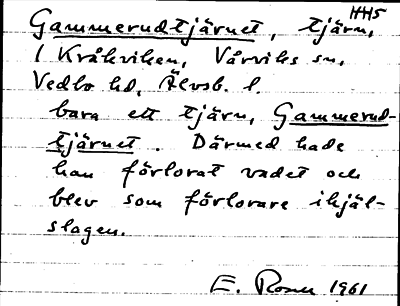 HH5
Gammerudtjärnet, tjärn,
i Kråkviken, Vårviks sn,
Vedbo hd, Älvsb. l.
bara ett tjärn, Gammerud-
tjärnet. Därmed hade
han förlorat vadet och
blev som förlorare ihjäl-
slagen.
E. 1961